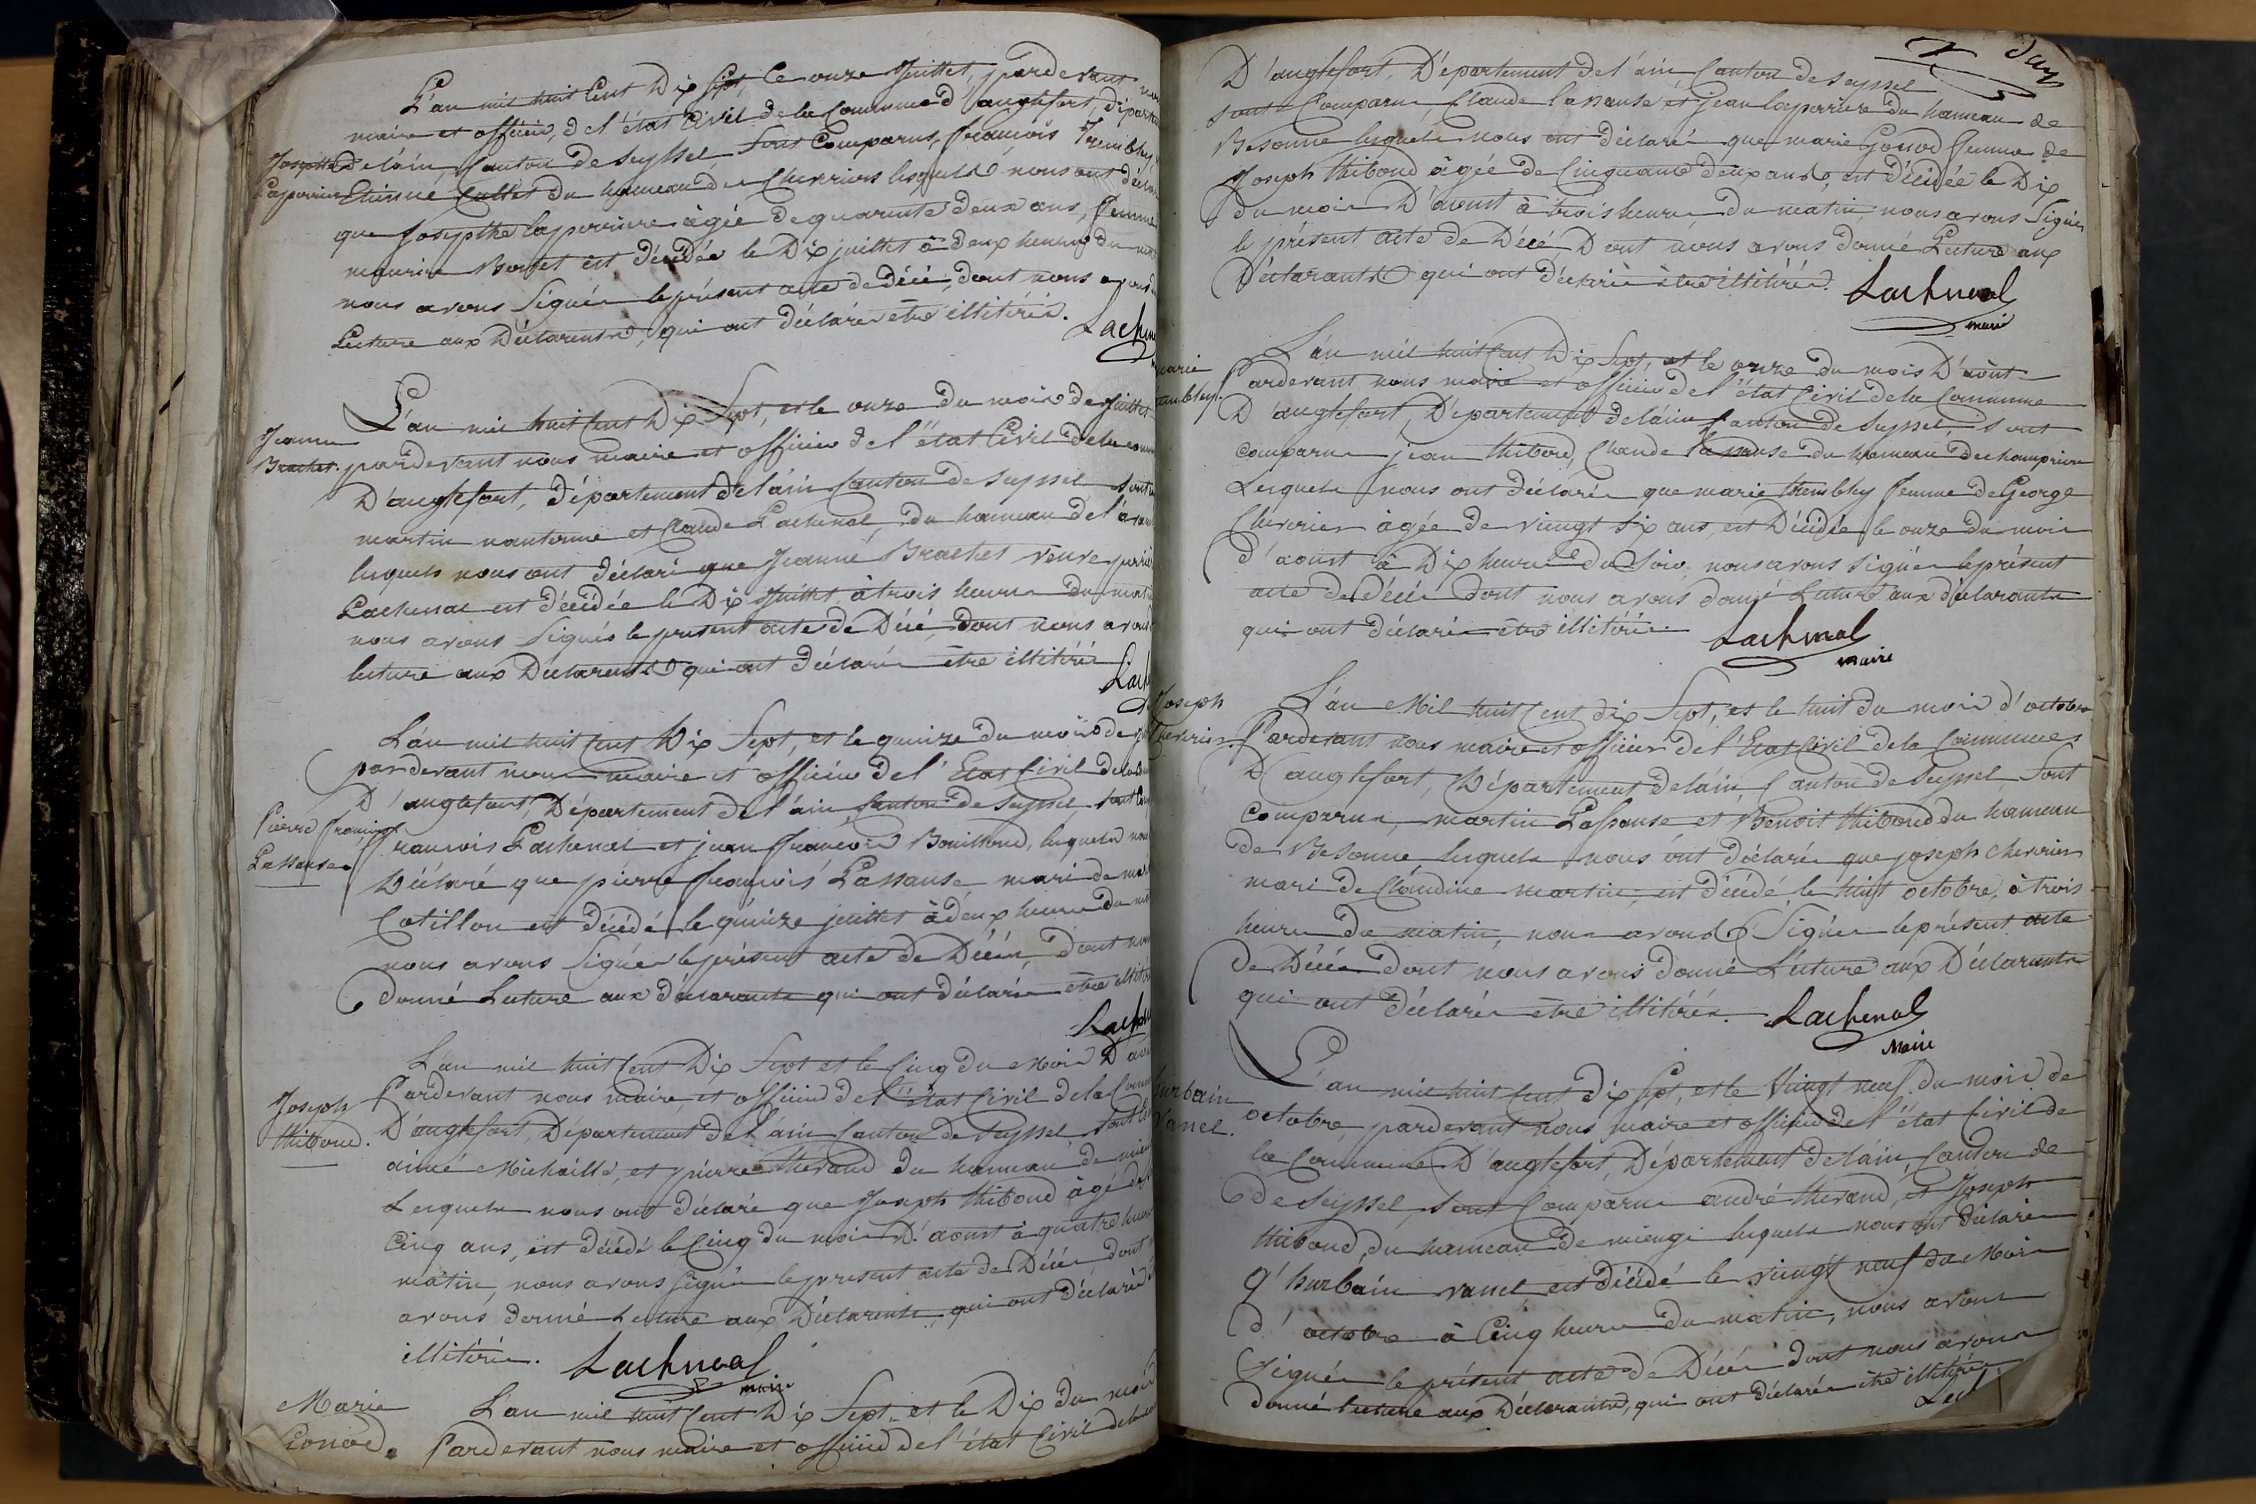 L'an mil huit Cent Dix Sept, le onze Juillet, pardevant nou
maire et officier, de l'état Civil de la Commune d'anglefort, départe
Josepthe de l'ain, Canton de Seyssel sont Comparus, francois Trembley
Laperrière Etienne Callet du hameau de Chevriers lesquels nous ont décla
que Josepthe laperriere âgée de quarante deux ans, femme
maurice Borset est décédée le Dix juillet à deux heures du
nous avons Signés le présent acte de décé, dont nous avons
Lecture aux Déclarents, qui ont déclarés etre illitérés.
Lachen
L'an mil huit Cent Dix Sept, et le onze du mois de Juillet
Jeanne
Brachet. pardevant nous maire et officier de l'état Civil de la com
D'anglefort, département de l'ain Canton de Seyssel sont
martin nanterme et Claude Lachenal du hameau de
lesquels nous ont déclaré que Jeanne Brachet veuve
Lachenal est décédée le Dix Juillet à trois heures du mat
nous avons Signés le present acte de Décé, dont nous avons
lecture aux Déclarents qui ont déclarés être illitérés.
Lach
L'an mil huit Cent Dix Sept, et le quinze du mois de
pardevant nous maire et officier de l'Etat Civil de la
D'anglefort, Département de l'ain, Canton de Seyssel, sont
Pierre francois francois Lachenal et jean francois Bouilloud, lesquels nou
Lassause Déclaré que pierre francois Lassause mari de
Cotillon est décédé le quinze juillet à deux heures du
nous avons Signés le présent acte de Décés, dont nou
donné Lecture aux déclarants qui ont déclarés être illité
Lach
L'an mil huit Cent Dix Sept et le Cinq du Mois D'
Joseph Pardevant nous maire et officier de l'état Civil de la Com
thiboud. D'anglefort, Département de l'ain Canton de Seyssel, sont
aimé Michaille, et pierre therand du hameau de
Lesquels nous ont déclaré que Joseph thiboud âgé de
Cinq ans, est décédé le Cinq du mois D'aoust à quatre heu
matin, nous avons Signés le present acte de Décés dont
avons donné Lecture aux Déclarents, qui ont déclarés
illitérés. Lachenal
maire
Marie L'an mil huit Cent Dix Sept, et le Dix du mois
Gonod. Pardevant nous maire et officier de l'état Civil de la
D'anglefort, Département de l'ain Canton de Seyssel
sont Comparus, Claude lassause et jean laperriere du hameau de
Besonne lesquels nous ont déclarés que marie Gonod femme de
Joseph thiboud âgée de Cinquante deux ans, est décédée le Dix
du mois D'aoust à trois heures du matin, nous avons Signés
le présent acte de Décé, Dont nous avons donné Lecture aux
Déclarants qui ont déclarés être illitérés. Lachenal
maire
L'an mil huit Cent Dix Sept, et le onze du mois D'août
marie Pardevant nous maire et officier de l'état Civil de la Commune
trembley. D'anglefort, Département de l'ain Canton de Seyssel, sont
comparus jean thiboud, Claude lassause du hameau de
Lesquels nous ont déclarés que marie trembley femme de George
Chevrier âgée de vingt Six ans, est Décédée le onze du mois
d'aoust à Dix heures du Soir, nous avons Signés le présent
acte de Décés dont nous avons donné Lecture aux déclarants
qui ont déclarés être illitérés Lachenal
maire
Joseph L'an Mil huit Cent dix Sept, et le huit du mois d'octobre
Chevrier. Pardevant nous maire et officier de l'Etat Civil de la Commune
D'anglefort, Département de l'ain, Canton de Seyssel, Sont
Comparus, martin Lassause et Benoit thiboud du hameau
de Besonne, lesquels nous ont déclarés que joseph chevrier
mari de Claudine martin, est décédé le huit octobre, à trois
heures du matin, nous avons Signés le présent acte
de Décés dont nous avons donné Lecture aux Déclarants
qui ont déclarés etre illitérés. Lachenal
Maire
L'an mil huit Cent dix Sept, et le Vingt neuf du mois de
hurbain octobre, pardevant nous maire et officier de l'état Civil de
Vanel. la Commune D'anglefort, Département de l'ain, Canton de
de Seyssel, sont Comparus andré therand, et Joseph
thiboud, du hameau de miengi lesquels nous ont déclarés
q'hurbain vanel est Décédé le vingt neuf du Mois
d'octobre à Cinq heures du matin, nous avons
Signés le présent acte de Décés dont nous avons
donné lecture aux Déclarants, qui ont déclarés être illitérés